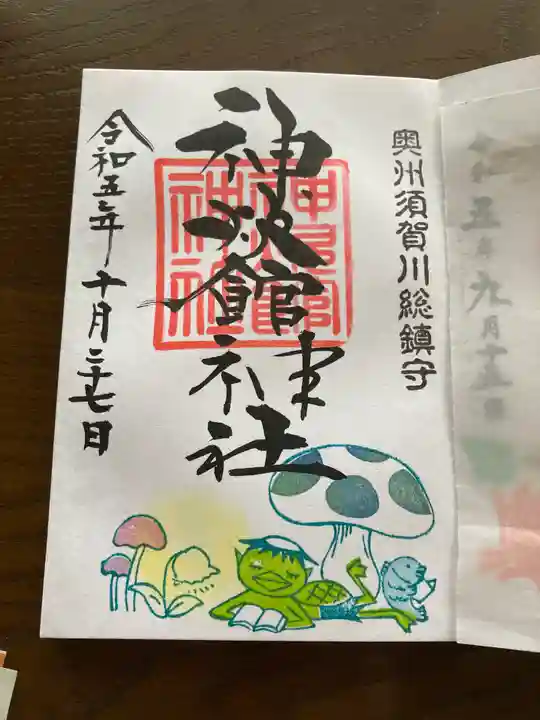 奥州須賀川総鎮守
神炊館神社
令和五年十月二十七日
五年九月十五日